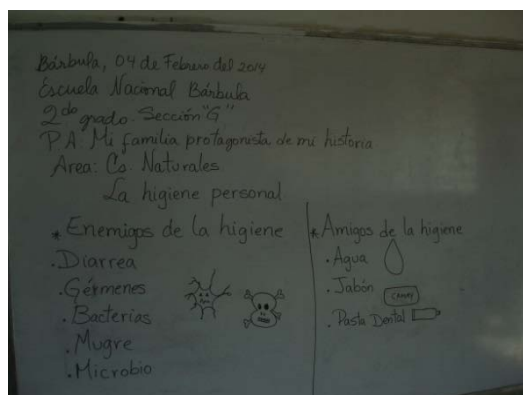 Bárbula, 04 de Febrero del 2014
Escuela Nacional Bárbula
2do grado. Sección "G"
P.A: Mi familia protagonista de mi historia
Area: Cs. Naturales
La higiene personal
* Enemigos de la higiene
. Diarrea
. Gérmenes
. Bacterias
. Mugre
. Microbio
* Amigos de la higiene
. Agua
. Jabón
. Pasta Dental